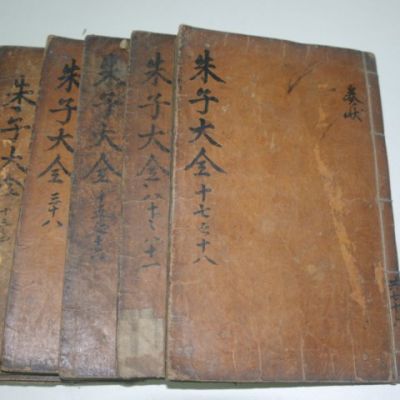 朱子大全 十七之十八
奏狀
朱子大全 八十之八十一
朱子大全
朱子大全 三十八
朱子大全